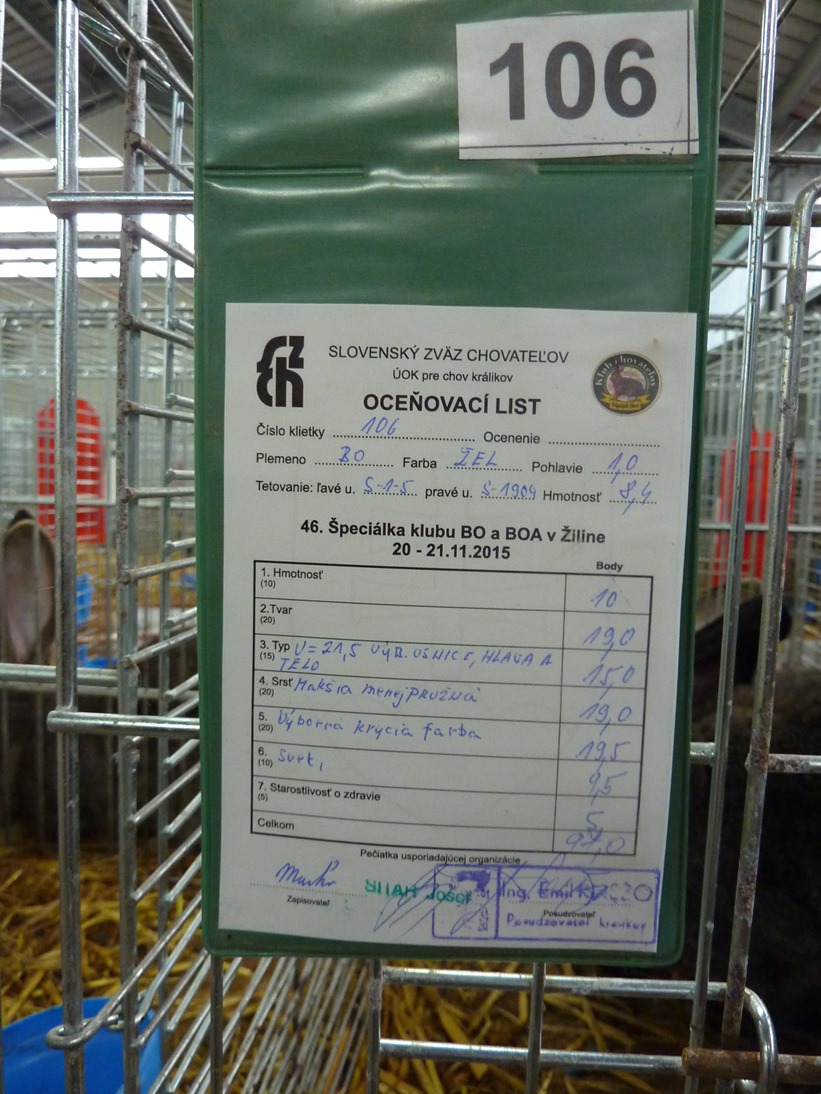 106
SLOVENSKÝ ZVÄZ CHOVATEĽOV
ÚOK pre chov králikov
OCEŇOVACÍ LIST
Číslo klietky 106 Ocenenie
Plemeno BO Farba ŽEL Pohlavie 1,0
Tetovanie: ľavé u. S-1-5 pravé u. S-1904 Hmotnosť 8,4
46. Špeciálka klubu BO a BOA v Žiline
20 - 21.11.2015
Body
1. Hmotnosť (10) 10
2.Tvar (20) 19,0
3. Typ (15) U=21,5 VÝB. USNICE, HLAVA A TELO 15,0
4. Srsť (20) Makšia menej pružná 19,0
5. (20) Výborná krycia farba 19,5
6. (10) svet, 9,5
7. Starostlivosť o zdravie (5) 5
Celkom 97,0
Pečiatka usporiadajúcej organizácie
Zapisovateľ
Ing. Emil
Posudzovateľ
Posudzovateľ